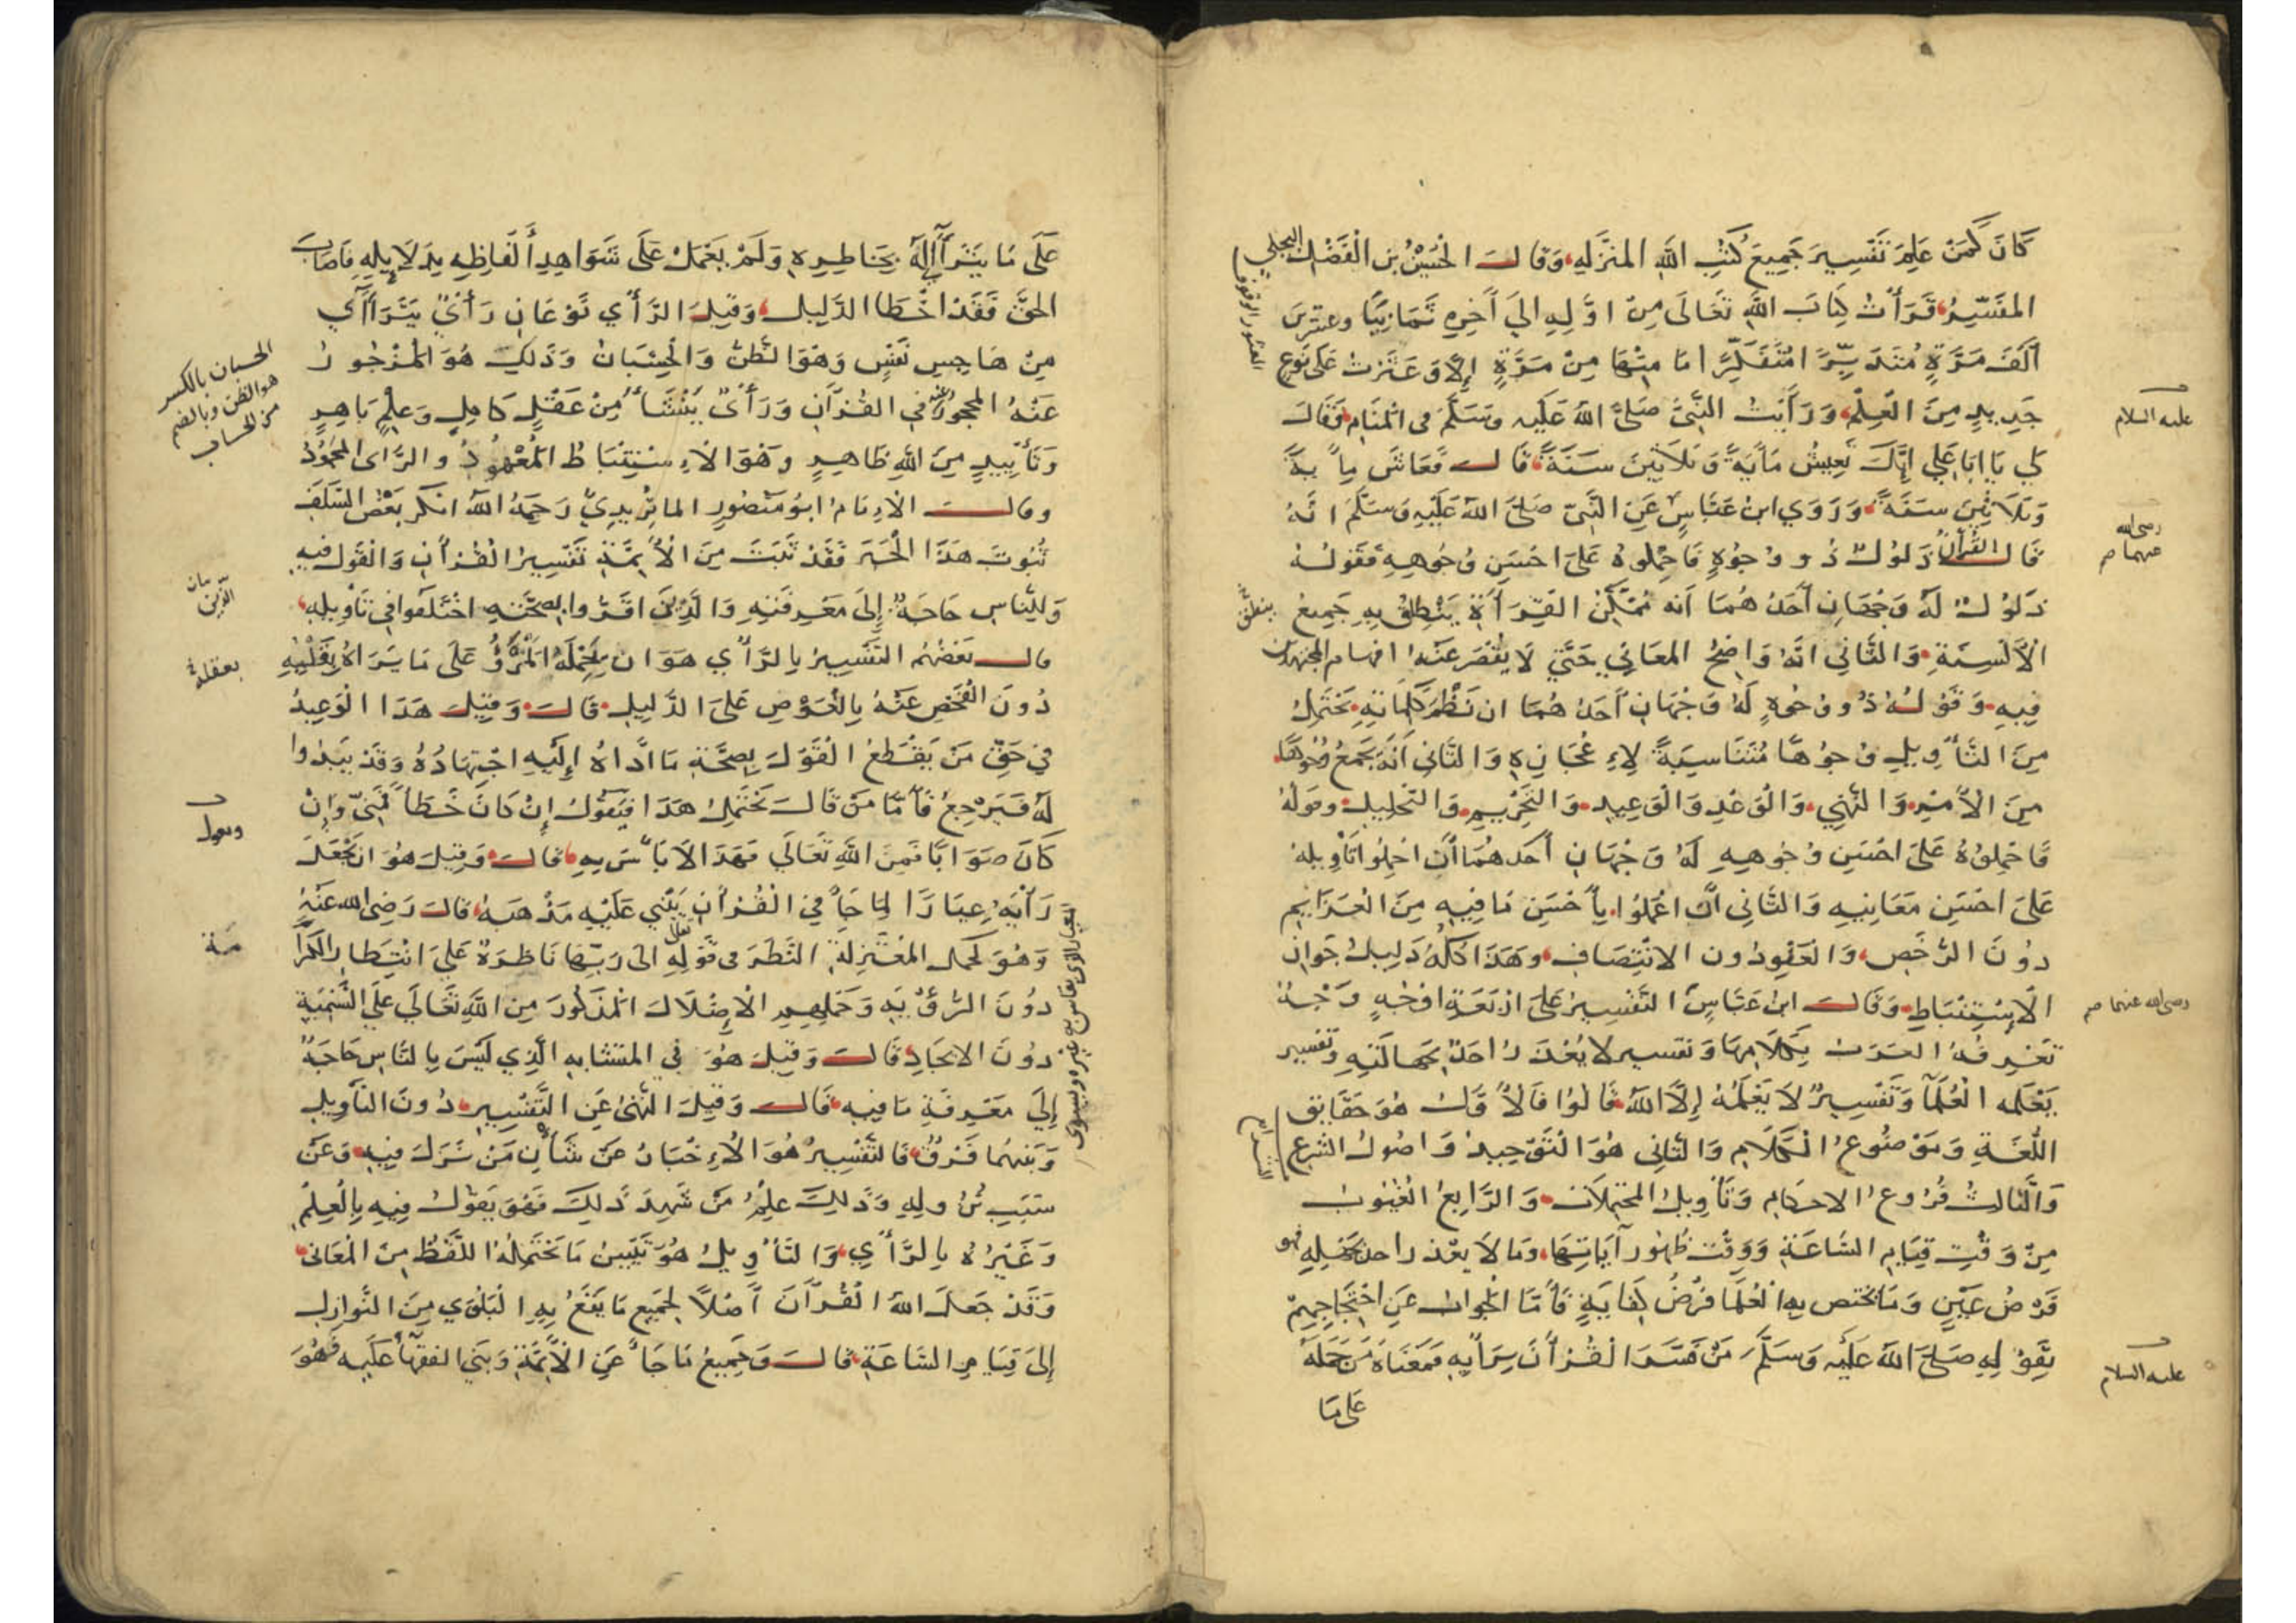 كَانَ كَمَنْ عَلِمَ تَفْسِيرَ جَمِيعِ كُتُبِ اللهِ المُنَزَّلَهِ وَقَالَ الْحُسَيْنُ بْنُ الْفَضْلِ البجلي
المفَسِّرُ قَرَأْتُ كِتَابَ اللهِ تَعَالَى مِنْ اوَّلِهِ اليَ آخِرِهِ ثَمَانِيًا وعشرين
اَلْفَ مَرَّةٍ مُتَدَبِّرًا مُتَفَكِّرًا مَا مِنْهَا مِنْ مَرَّةٍ إِلاَّ وَعَثَرْتُ عَلَى نَوْعٍ
جَدِيدٍ مِنَ الْعِلْمِ وَرَأَيْتُ النَّبِيَّ صَلَّى اللهُ عَلَيْهِ وَسَلَّمَ فى الْمَنَامِ فَقَالَ
لِي يَا ابَا عَلِي إِنَّكَ تَعِيشُ مِأَيَةً وَثَلَاثِينَ سَنَةً قَالَ فَعَاشَ مِأيَةً
وَثَلَاثِينَ سَنَةً وَرَوَي ابْنُ عَبَّاسٍ عَنِ النَّبِيّ صَلَّى اللهُ عَلَيْهِ وَسَلَّمَ انَّهُ
قَالَ القُرآنُ ذَلُولٌ ذُو وُجُوْهٍ فَاحْمِلُوهُ عَلَى احْسَنِ وُجُوهِهِ فَقَوْلُهُ
ذَلُوْلٌ لَهُ وَجْهَانِ أَحَدُهُمَا اَنه مُمَكَّنُ القِرَأَةِ يَنْطِقُ بِهِ جَمِيعُ
الْأَلْسِنَةِ وَالثَّانِي انَّهُ وَاضِحُ المَعَانِي حَتَّى لَا يَقْصُرَ عَنْهُ افهام المجتهدين
فِيهِ وَقَوْلُهُ ذُو وُجُوهٍ لَهُ وَجْهَانِ أَحَدُهُمَا ان نَظْمَ كَلِمَاتِهِ يَحْتَمِلُ
مِنَ التَّأوِيلِ وُجُوْهًا مُتَنَاسِبَةً لِإِعْجَازِهِ وَالثَّانِى اَنَّهُ يَجْمَعُ وُجُوهًا
مِنَ الْأَمْرِ وَالنَّهْيِ وَالْوَعْدِ وَالْوَعِيدِ وَالتَّحْرِيمِ وَالتَّحْلِيلِ وقولُهُ
فَاحْمِلُوْهُ عَلَى احْسَنِ وُجُوهِهِ لَهُ وَجْهَانِ أَحَدُهُمَا أَنِ احْمِلُوا تَأْوِيلَهُ
عَلَى احْسَنِ مَعَانِيهِ وَالثَّانِى أَنِ اعْمَلُوا بِأَحْسَنِ مَا فِيهِ مِنَ الْعَزَايِمِ
دُوْنَ الرُّخَصِ وَالْعَفْوِ دُون الانْتِصَافِ وَهَذَا كُلُّهُ دَلِيلُ جَوَازِ
الْاِسْتِنْبَاطِ وَقَالَ ابْنُ عَبَّاسٍ التَّفْسِيرُ عَلَى ارْبَعَةِ اوْجُهٍ وَجْهٌ
تَعْرِفُهُ العَرَبُ بِكَلَامِهَا وَتَفْسِيرٌ لا يُعْذَرُ احَدٌ بِجَهَالَتِهِ وَتَفْسِير
يَعْلَمُه الْعُلَمَآ وَتَفْسِيرٌ لَا يَعْلَمُهُ إِلاَّ اللهُ قَالُوا فَالْأَوَّلُ هُوَ حَقَايِق
اللُّغَةِ وَمَوْضُوعُ الْكَلَامِ وَالثَّانِى هُوَ التَّوْحِيدُ وَاصُولُ الشَّرْعِ
وَالثَّالِثُ فُرُوعُ الاحكَامِ وَتَأْوِيلُ المحْتَمِلَات وَالرَّابِعُ الْغُيُوبُ
مِنْ وَقْتِ قِيَامِ السَّاعَةِ وَوَقْتِ ظُهُورِ آيَاتِهَا وَمَا لَا يعْذَرُ احَدٌ بِجَهْلِهِ فهو
فَرْضُ عَيْنٍ وَمَا يختص بِهِ الْعُلَمَا فَرْضُ كِفَايَةٍ فَأَمَّا الْجَوَابُ عَنِ احْتِجَاجِهِمْ
بِقَوْلِهِ صَلَّى اللهُ عَلَيْهِ وَسَلَّمَ مَنْ فَسَّرَ الْقُرْأَنَ بِرَأيِهِ فَمَعْنَاهُ مَنْ حَمَلَهُ
عَلى مَا
عليه السلام
رضى الله
عنهما صح
رضى الله عنهما صح
عليه السلام
عَلَى مَا يَتَرَاَاَالَهُ بِخَاطِرِهِ وَلَمْ يَعْمَلْ عَلَى شَوَاهِدِ أَلْفَاظِهِ بِدَلَايِلِهِ فَاصَابَ
الحَقَّ فَقَدْ اخْطَا الدَّلِيلَ وَقِيلَ الرَّأْي نَوْعَانِ رَأْيٌ يَتَرَاَأَي
مِنْ هَاجِسِ نَفْسٍ وَهْوَ الظَّنُّ وَالْحِسْبَانُ وَذَلِكَ هُوَ الْمَزْجُورُ
عَنْهُ المحجورُ عنه فِي القُرْآنِ وَرَأْيٌ يَنْشَأُ مِنْ عَقْلٍ كَامِلٍ وَعِلْمٍ بَاهِرٍ
وَتَأْيِيدٍ مِنَ اللهِ ظَاهِرٍ وَهْوَ الْاِسْتِنْبَاطُ الْمَعْهُودُ والرَّاىُ المَحْمُوْدُ
وقال الْاِمَامُ ابُو مَنْصُورٍ الماتُرِيدِيّ رَحِمَهُ اللهُ انكر بَعْضُ السَّلَفِ
ثُبُوتَ هَذَا الْخَبَرِ فَقَدْ ثَبَتَ مِنَ الْأَيِمَّةِ تَفْسِيرُ الْقُرْأَنِ وَالْقَوْلُ فِيهِ
وَلِلنَّاسِ حَاجَةٌ إِلَى مَعْرِفَتِهِ وَالَّذِينَ اقَرُّوا بِصِحَّتِهِ اخْتَلَفُوا فِي تَأْوِيلِهِ
قال بَعْضُهُم التَّفْسِيرُ بِالرَّأْيِ هَوَ ان يَحْمِلَهُ الْمَرْؤُ عَلَى مَا يَرَاهُ بِقَلْبِهِ
دُونَ الْفَحْصِ عَنْهُ بِالْعَرْضِ عَلَى الدَّلِيلِ قَالَ وَقِيلَ هَذَا الْوَعِيدُ
فِي حَقِّ مَنْ يَقْطَعُ الْقَوْلَ بِصِحَّةِ مَا ادَّاهُ إِلَيْهِ اجْتِهَادُهُ وَقَدْ يَبْدُوا
لَهُ فَيَرْجِعُ فَأَمَّا مَنْ قَالَ يَحْتَمِلُ هَذَا فَيَقُوْلُ إِنْ كَانَ خَطَأً فَمِنِّي وَإِنْ
كَانَ صَوَابًا فَمِنَ اللهِ تَعَالَي فَهَذَا لَا بَاْسَ بِهِ قَالَ وَقِيلَ هُوَ انْ يَجْعَلَ
رَأْيَهُ عِيَارًا لِمَا جَاَ فِي الْقُرْأَنِ يَبْنِي عَلَيْهِ مَذْهَبَهُ قالَ رَضِىَ الله عَنْهُ
وَهُوَ كَحَمل المُعْتَزِلَةِ النَّظَرَ فى قَوْلِهِ تعالى الى رَبِّهَا نَاظِرَةٌ عَلَى انْتِظَارِ الْكَرَامَةِ
دوُنَ الرُّؤْيَهِ وَحَمْلِهِم الْاِضْلَالَ الْمَذكُورَ مِن اللهِ تَعَالَي عَلَي التَّسْمِيَةِ
دوُنَ الايجَادِ قَالَ وَقِيلَ هُوَ فِي المتَشَابهِ الَّذِي لَيْسَ بِالنَّاسِ حَاجَةٌ
إِلَى مَعْرِفَةِ مَا فِيهِ قَالَ وَقِيلَ النَّهْىُ عَنِ التَّفْسِيرِ دُونَ التَّأوِيلِ
وَبَيْنهُما فَرْقٌ فَالتَّفْسِيرُ هُوَ الْاِخْبَارُ عَنْ شَأْنِ مَنْ نَزَلَ فِيهِ وَعَنْ
سَبَبِ نُزُولِهِ وَذَلِكَ عِلْمُ مَنْ شَهِدَ ذَلِكَ فَهْوَ يَقُوْلُ فِيهِ بِالْعِلْمِ
وَغَيْرُهُ بِالرَّأْيِ وَالتَّأْوِيلُ هُوَ تَبْيينُ مَا يَحْتَمِلُهُ اللَّفْظُ مِنَ الْمَعَانِى
وَقَدْ جَعَلَ اللهُ الْقُرْآنَ أَصْلاً لِجَمِيعِ مَا يَقَعُ بِهِ الْبَلْوَي مِنَ النَّوَازِلِ
إِلَى قِيَامِ السَّاعَةِ قَالَ وَجَمِيعُ مَا جَاَ عَنِ الْأَيِمَّةِ وَبَنَى الفقهَآُ عَلَيهِ فَهُوَ
الحسبان بالكسر
هو الظن وبالضم
من الحساب
بعقله
ويقول